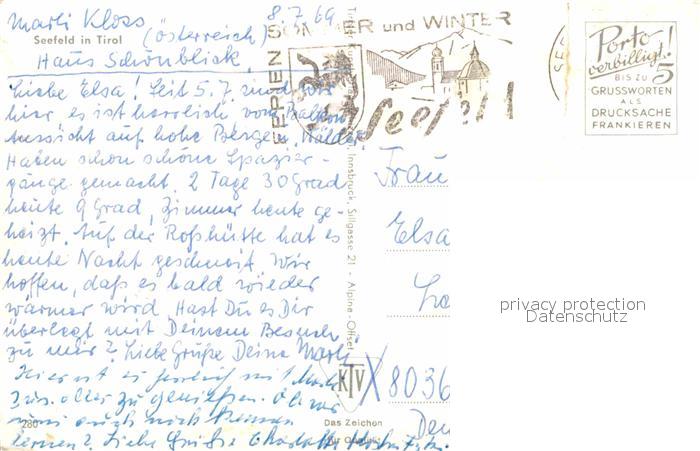 Marli Kloss 8.7.69
Seefeld in Tirol (Österreich)
Haus Schönblick
Liebe Elsa! Seit 5.7. sind wir
hier es ist herrlich vom Balkon
Aussicht auf hohe Berge u. Wälder
Haben schon schöne Spazier-
gänge gemacht. 2 Tage 30 Grad
heute 9 Grad, Zimmer heute ge-
heizt. Auf der Roßhütte hat es
heute Nacht geschneit. Wir
hoffen, daß es bald wieder
wärmer wird. Hast Du es Dir
überlegt mit Deinem Besuch
zu mir? Liebe Grüße Deine Marli
Hier ist es herrlich mit
zus. alles zu genießen. Ob wir
uns auch noch kennen
lernen? Liebe Grüße Charlotte
280
FERIEN SOMMER und WINTER
Seefeld
Porto
verbilligt!
BIS ZU 5
GRUSSWORTEN
ALS
DRUCKSACHE
FRANKIEREN
Innsbruck, Sillgasse 21 - Alpine-Offset
KTV
Das Zeichen
für Qualität
Frau
Elsa
8036
privacy protection
Datenschutz